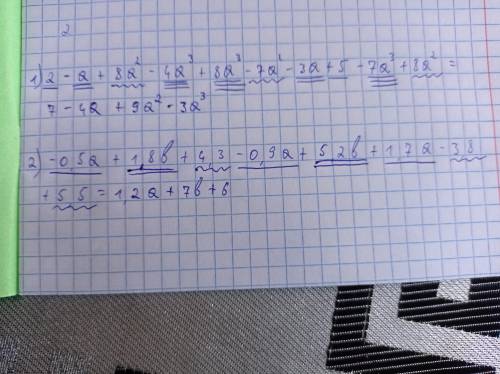 2
1) 2 - a + 8a² - 4a³ + 8a³ - 7a² - 3a + 5 - 7a³ + 8a² =
7 - 4a + 9a² - 3a³
2) -0,5a + 1,8b + 4,3 - 0,9a + 5,2b + 1,7a - 3,8
+ 5,5 = 1,2a + 7b + 6